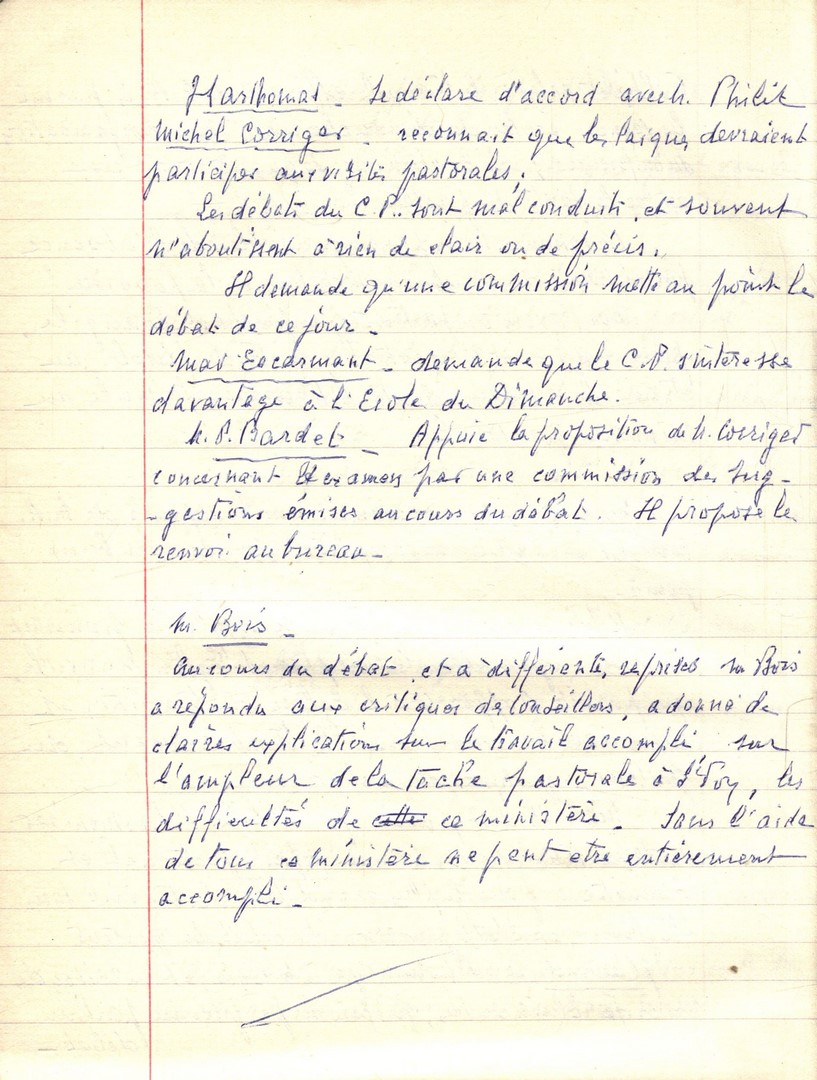 H Marthomat - Se déclare d'accord avec M. Philit
Michel Corriger - reconnait que les laïques devraient
participer aux visites pastorales.
Les débats du C.P. sont mal conduits, et souvent
n'aboutissent à rien de clair ou de précis.
Il demande qu'une commission mette au point le
débat de ce jour -
Max Escarmant - demande que le C.P. s'intéresse
davantage à l'Ecole du Dimanche.
M. P. Bardet - Appuie la proposition de M. Corriger
concernant l'examen par une commission des sug-
-gestions émises au cours du débat. Il propose le
renvoi au bureau -
M. Bois -
Au cours du débat, et à différentes reprises M Bois
a répondu aux critiques de conseillers, a donné de
claires explications sur le travail accompli, sur
l'ampleur de la tache pastorale à S'Voy, les
difficultés de cette ce ministère - Sans l'aide
de tous ce ministère ne peut etre entièrement
accompli -